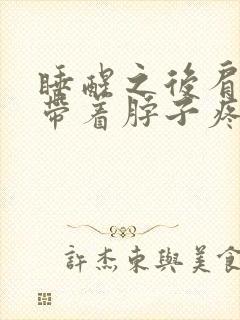 睡醒之後肩
帶着脖子疼
許杰東與美食